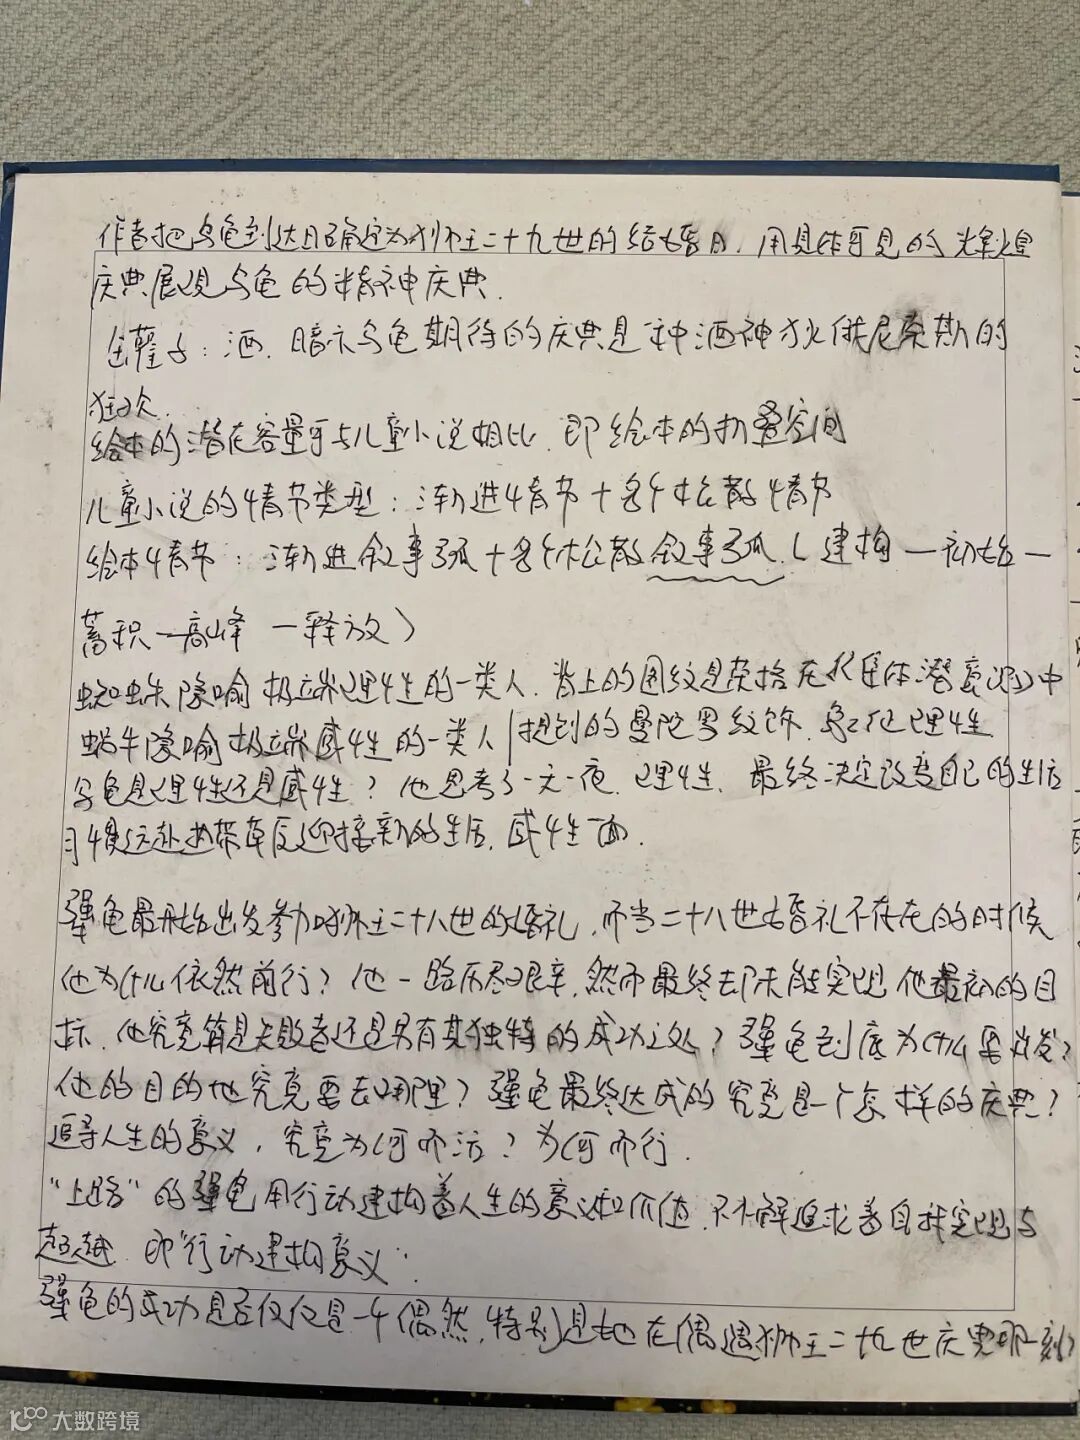 作者把乌龟到达日确定为狮王二十九世的结婚日，用具体可见的辉煌
庆典展现乌龟的精神庆典．
坛罐子：酒．暗示乌龟期待的庆典是一种酒神狄俄尼索斯的
狂欢．
绘本的潜在容量可与儿童小说相比．即绘本的折叠空间
儿童小说的情节类型：渐进情节＋各个松散情节
绘本情节：渐进叙事弧＋各个松散叙事弧（建构—初始—
蓄积—高峰—释放）
蜘蛛隐喻极端理性的一类人．背上的图纹是荣格在《集体潜意识》中
蜗牛隐喻极端感性的一类人／提到的曼陀罗纹饰．象征理性
乌龟是理性还是感性？他思考了一天一夜．理性．最终决定改变自己的生活
习惯远赴 迎接新的生活．感性一面．
强龟最开始出发参加狮王二十八世的婚礼，而当二十八世婚礼不存在的时候
他为什么依然前行？他一路历尽艰辛，然而最终却未能实现他最初的目
标．他究竟算是失败者还是另有其独特的成功之处？强龟到底为什么要出发？
他的目的地究竟要去哪里？强龟最终达成的究竟是一个怎样的庆典？
追寻人生的意义，究竟为何而活？为何而行．
“上路”的强龟用行动建构着人生的意义和价值．不懈追求着自我实现与
超越．即“行动建构意义”．
强龟的成功是否仅仅是一个偶然，特别是他在偶遇狮王二十九世庆典那一刻？
大数跨境